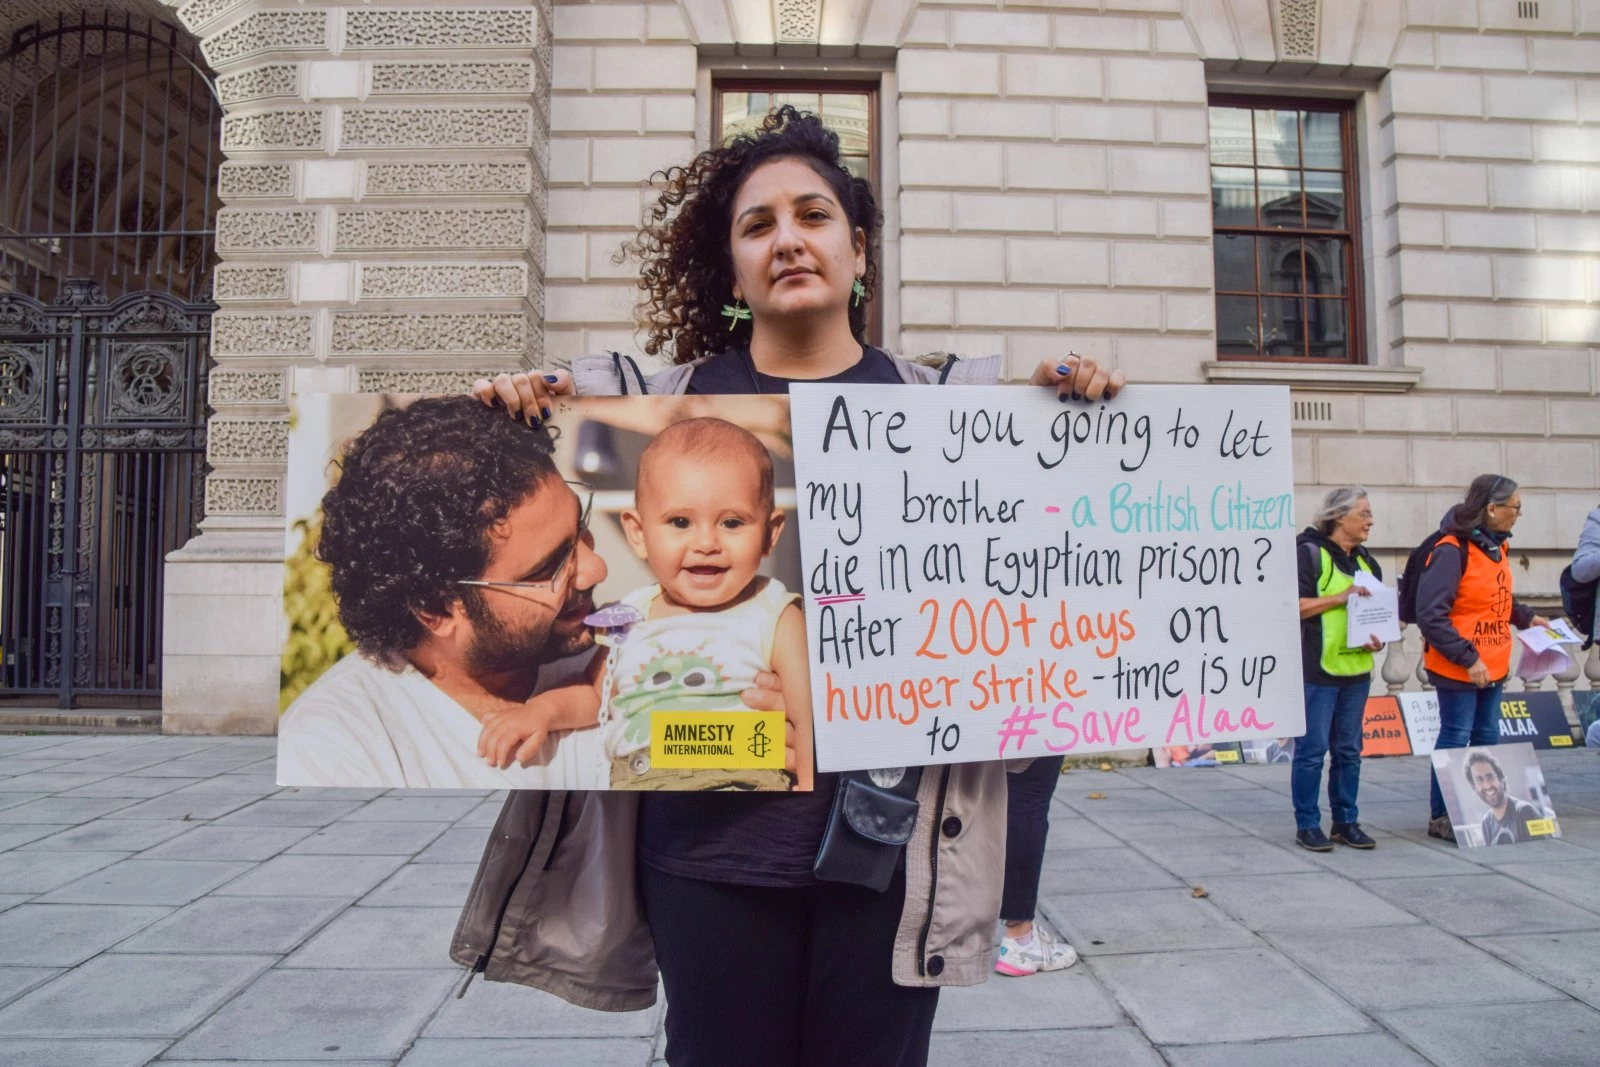 Are you going to let
my brother - a British Citizen
die in an Egyptian prison?
After 200+ days on
hunger strike - time is up
to #Save Alaa
AMNESTY
INTERNATIONAL
AMNES
INTERNATI
تنتصر
eAlaa
A BR
REE
ALAA
AMNESTY